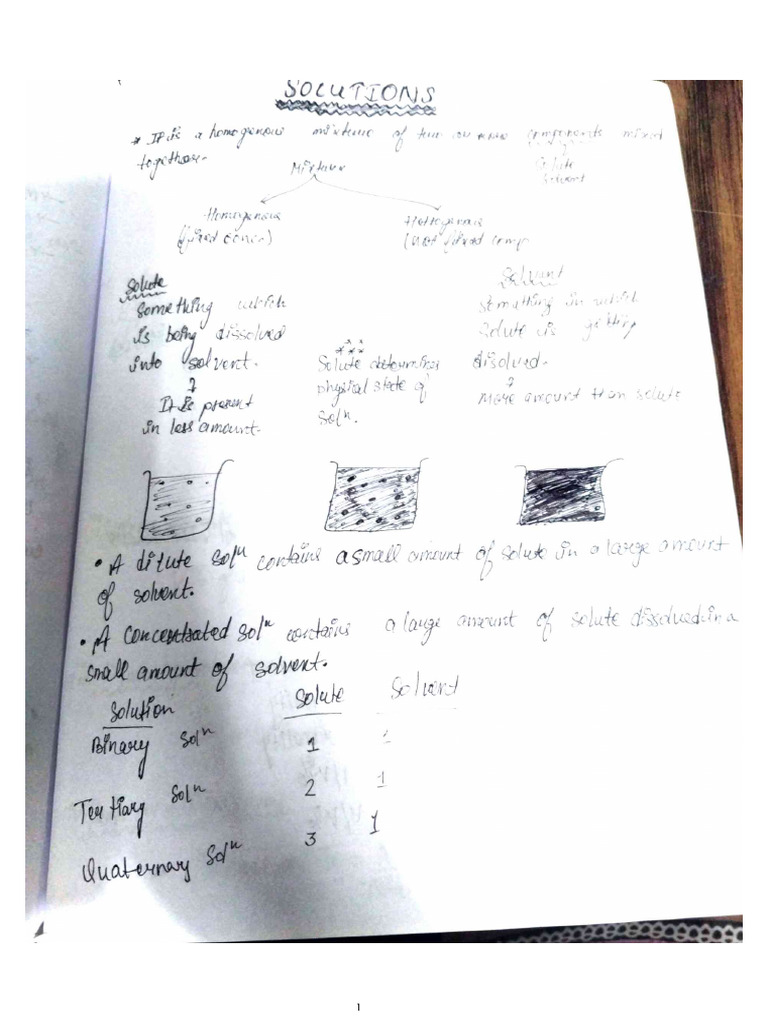 SOLUTIONS
* It is a homogenous mixture of two or more components mixed
together.
solute
solvent
Mixture
Homogenous
(fixed
Hetrogenous
(not fixed comp
Solute
something which
is being dissolved
into solvent.
↓
It is present
in less amount.
* * *
Solute determines
physical state of
Solⁿ.
Solvent
something in which
solute is getting
disolved.
↓
more amount than solute
• A dilute solⁿ contains a small amount of solute in a large amount
of solvent.
• A concentrated solⁿ contains a large amount of solute dissolved in a
small amount of solvent.
Solution Solute Solvent
Binary solⁿ 1 1
Tertiary solⁿ 2 1
Quaternary solⁿ 3 1
1